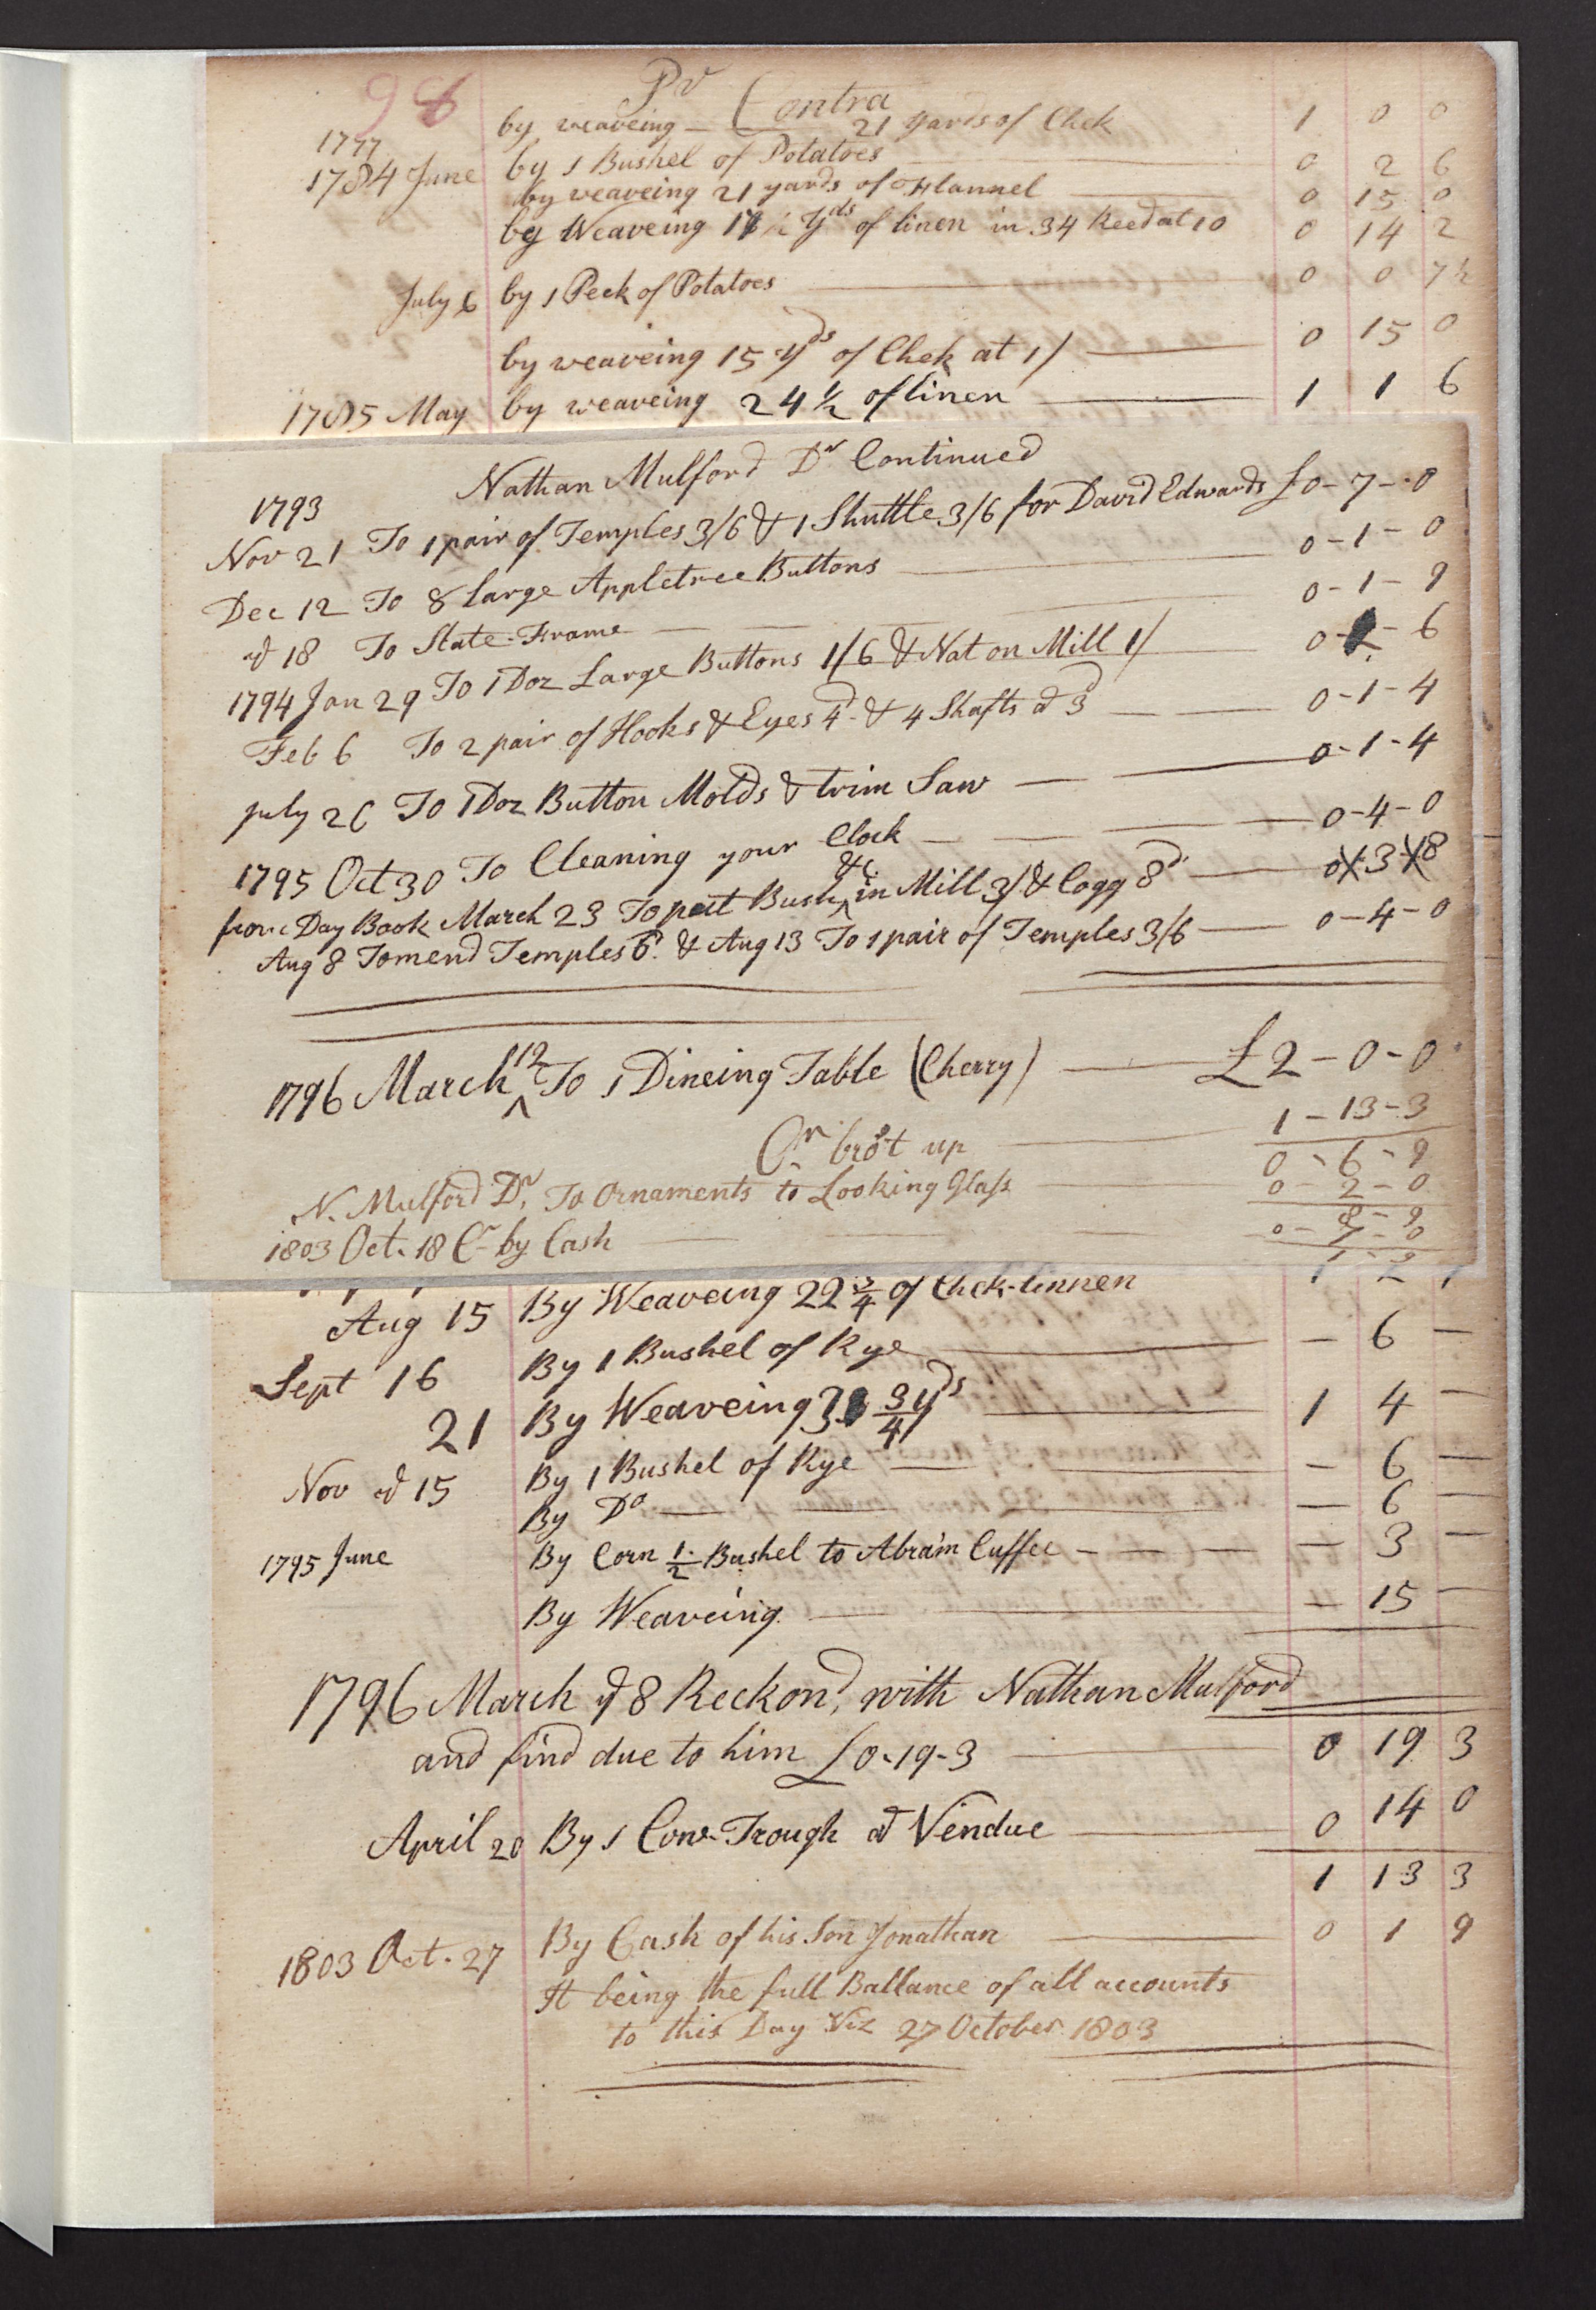 98
Pr Contra
1777 by weaveing — 21 yards of Chek 1 0 0
1784 June by 1 Bushel of Potatoes 0 2 6
by weaveing 21 yards of Flannel 0 15 0
by Weaveing 17 ½ Yds of linen in 34 Reed at 10 0 14 2
July 6 by 1 Peck of Potatoes 0 0 7½
by weaveing 15 yds of Chek at 1/ 0 15 0
1785 May by weaveing 24 ½ of linen 1 1 6
Nathan Mulford Dr Continued
1793
Nov 21 To 1 pair of Temples 3/6 & 1 Shuttle 3/6 for David Edwards £0-7-0
Dec 12 To 8 Large Appletree Buttons 0-1-0
d 18 To Slate-Frame 0-1-9
1794 Jan 29 To 1 Doz Large Buttons 1/6 & Nat on Mill 1/ 0-2-6
Feb 6 To 2 pair of Hooks & Eyes 4d & 4 Shafts d 3 0-1-4
july 26 To 1 Doz Button Molds & trim Saw 0-1-4
1795 Oct 30 To Cleaning your Clock 0-4-0
from Day Book March 23 To put Bush &c in Mill 3/ & Cogg 8d 0-3-8
Aug 8 To mend Temples 6d & Aug 13 To 1 pair of Temples 3/6 0-4-0
1796 March 12 To 1 Dineing Table (Cherry) £2-0-0
Cr brot up 1-13-3
0-6-9
N. Mulford Dr, To Ornaments to Looking Glass 0-2-0
8-9
1803 Oct. 18 Cr by Cash 0-7-0
1-9
Aug 15 By Weaveing 22 ¾ of Chek-linnen 1 2
Sept 16 By 1 Bushel of Rye — 6 —
21 By Weaveing ¾ yds 1 4 —
Nov d 15 By 1 Bushel of Rye — 6 —
By Do — 6 —
1795 June By Corn ½ Bushel to Abraim Cuffee — 3 —
By Weaveing — 15 —
1796 March d 8 Reckond, with Nathan Mulford
and find due to him £0-19-3 0 19 3
April 20 By 1 Cow-Trough at Vendue 0 14 0
1 13 3
1803 Oct. 27 By Cash of his Son Jonathan 0 1 9
It being the full Ballance of all accounts
to this Day Viz 27 October 1803